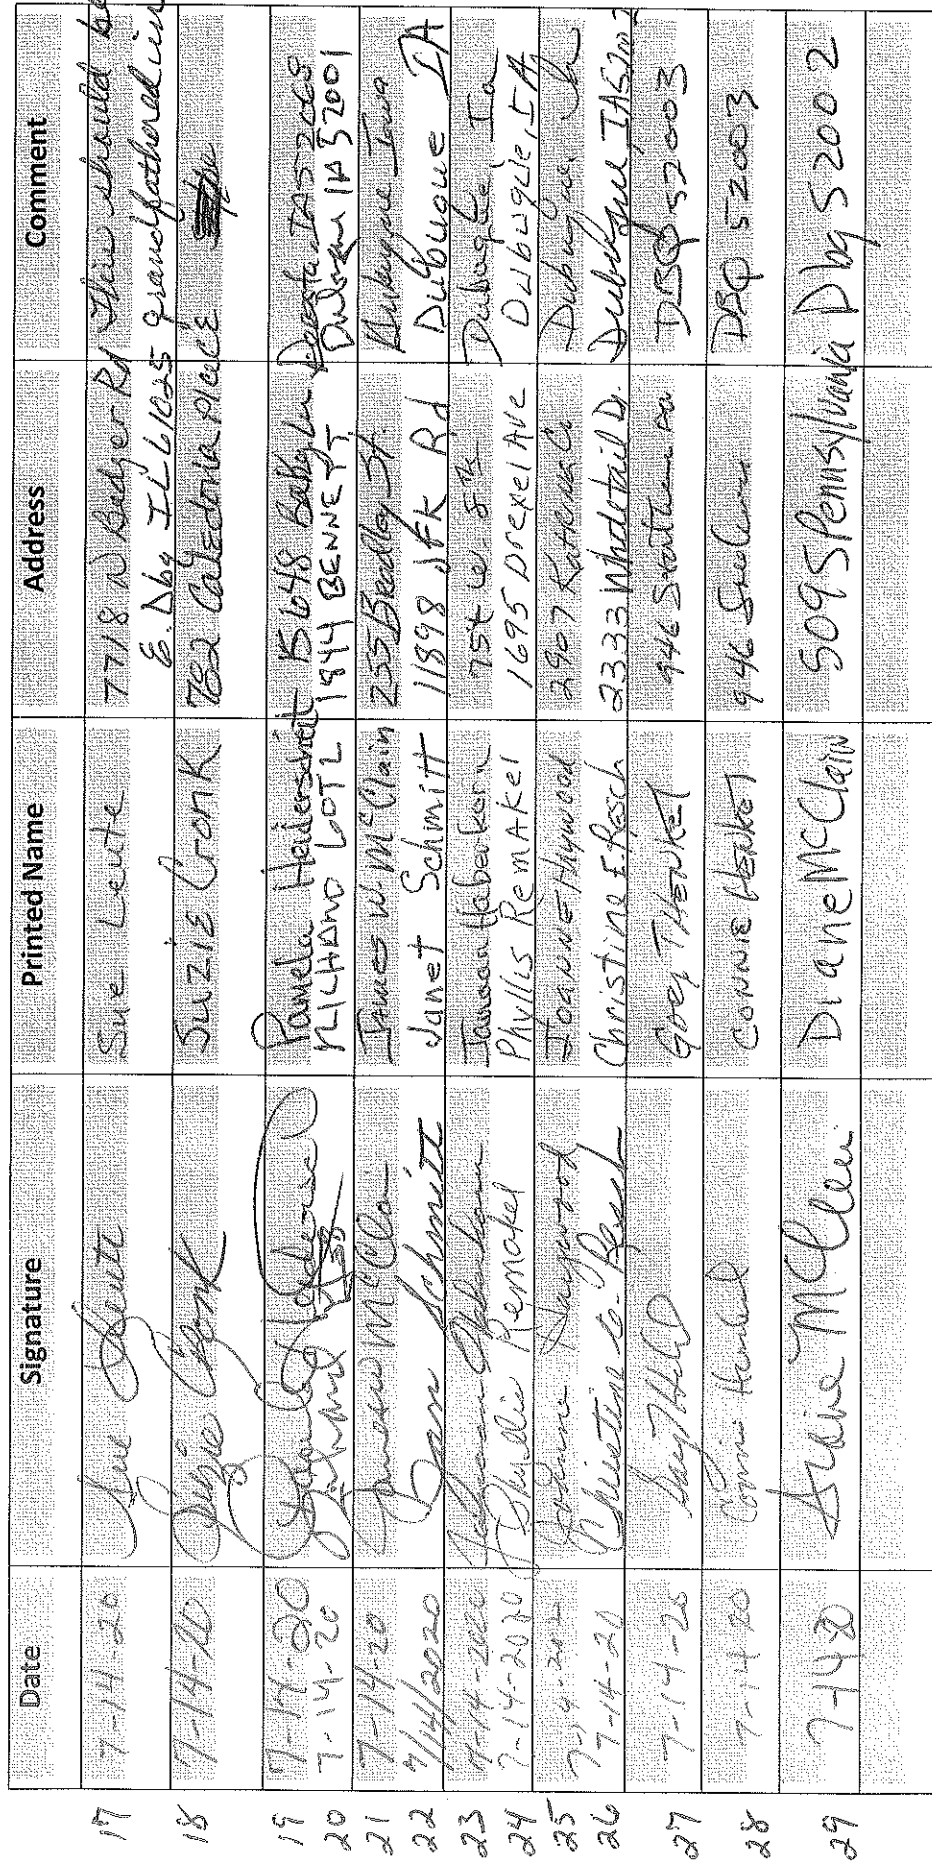 Date Signature Printed Name Address Comment
17 7-14-20 Sue Leute Sue Leute 7718 W Badger Rd This should be
E. Dbq IL 61025 grandfathered in
18 7-14-20 Suzie Cronk SuZiE CronK 782 Caledonia PlacE
19 7-14-20 Pamela Heiderscheit 15648 Peosta IA 52068
20 7-14-20 RICHARD GOTZ 1844 BENNETT Dubuque IA 52001
21 7-14-20 James W McClain James W McClain 255 Bradley St. Dubuque Iowa
22 7/14/2020 Jan Schmitt Janet Schmitt 11898 JFK Rd Dubuque IA
23 7-14-2020 Haberkorn 75 Dubuque, Ia
24 7-14-2020 Phyllis Remakel Phyllis RemAkel 1695 Drexel AVe Dubuque, IA
25 7-14-2020 Joanne Haywood JoANNE Haywood 2967 Katrina Ci Dubuque, Ia
26 7-14-20 Christine E. Resch Christine E. Resch 2333 Whitetail Dr. Dubuque IA 52002
27 7-14-20 HENKEL 946 DBQ 52003
28 7-14-20 Connie Henkel CONNIE HENKEL 946 DBQ 52003
29 7-14-20 Diane McClain Diane McClain 5095 Pennsylvania Dbq 52002